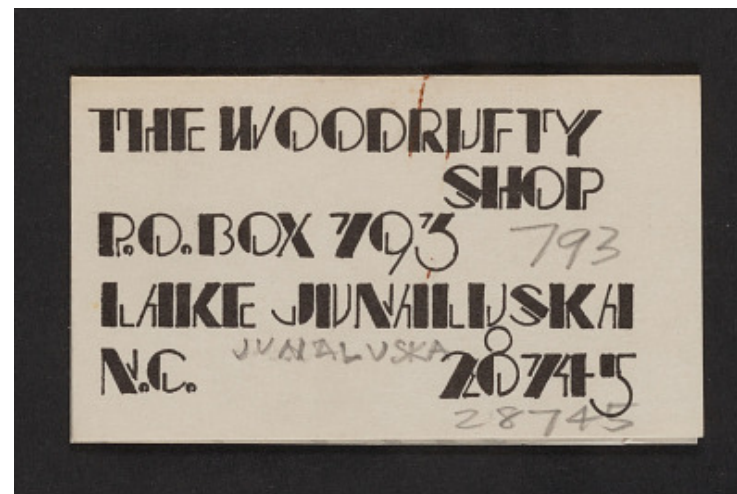 THE WOODRUFTY
SHOP
P.O. BOX 793 793
LAKE JUNALUSKA
JUNALUSKA
N.C. 28745
28745